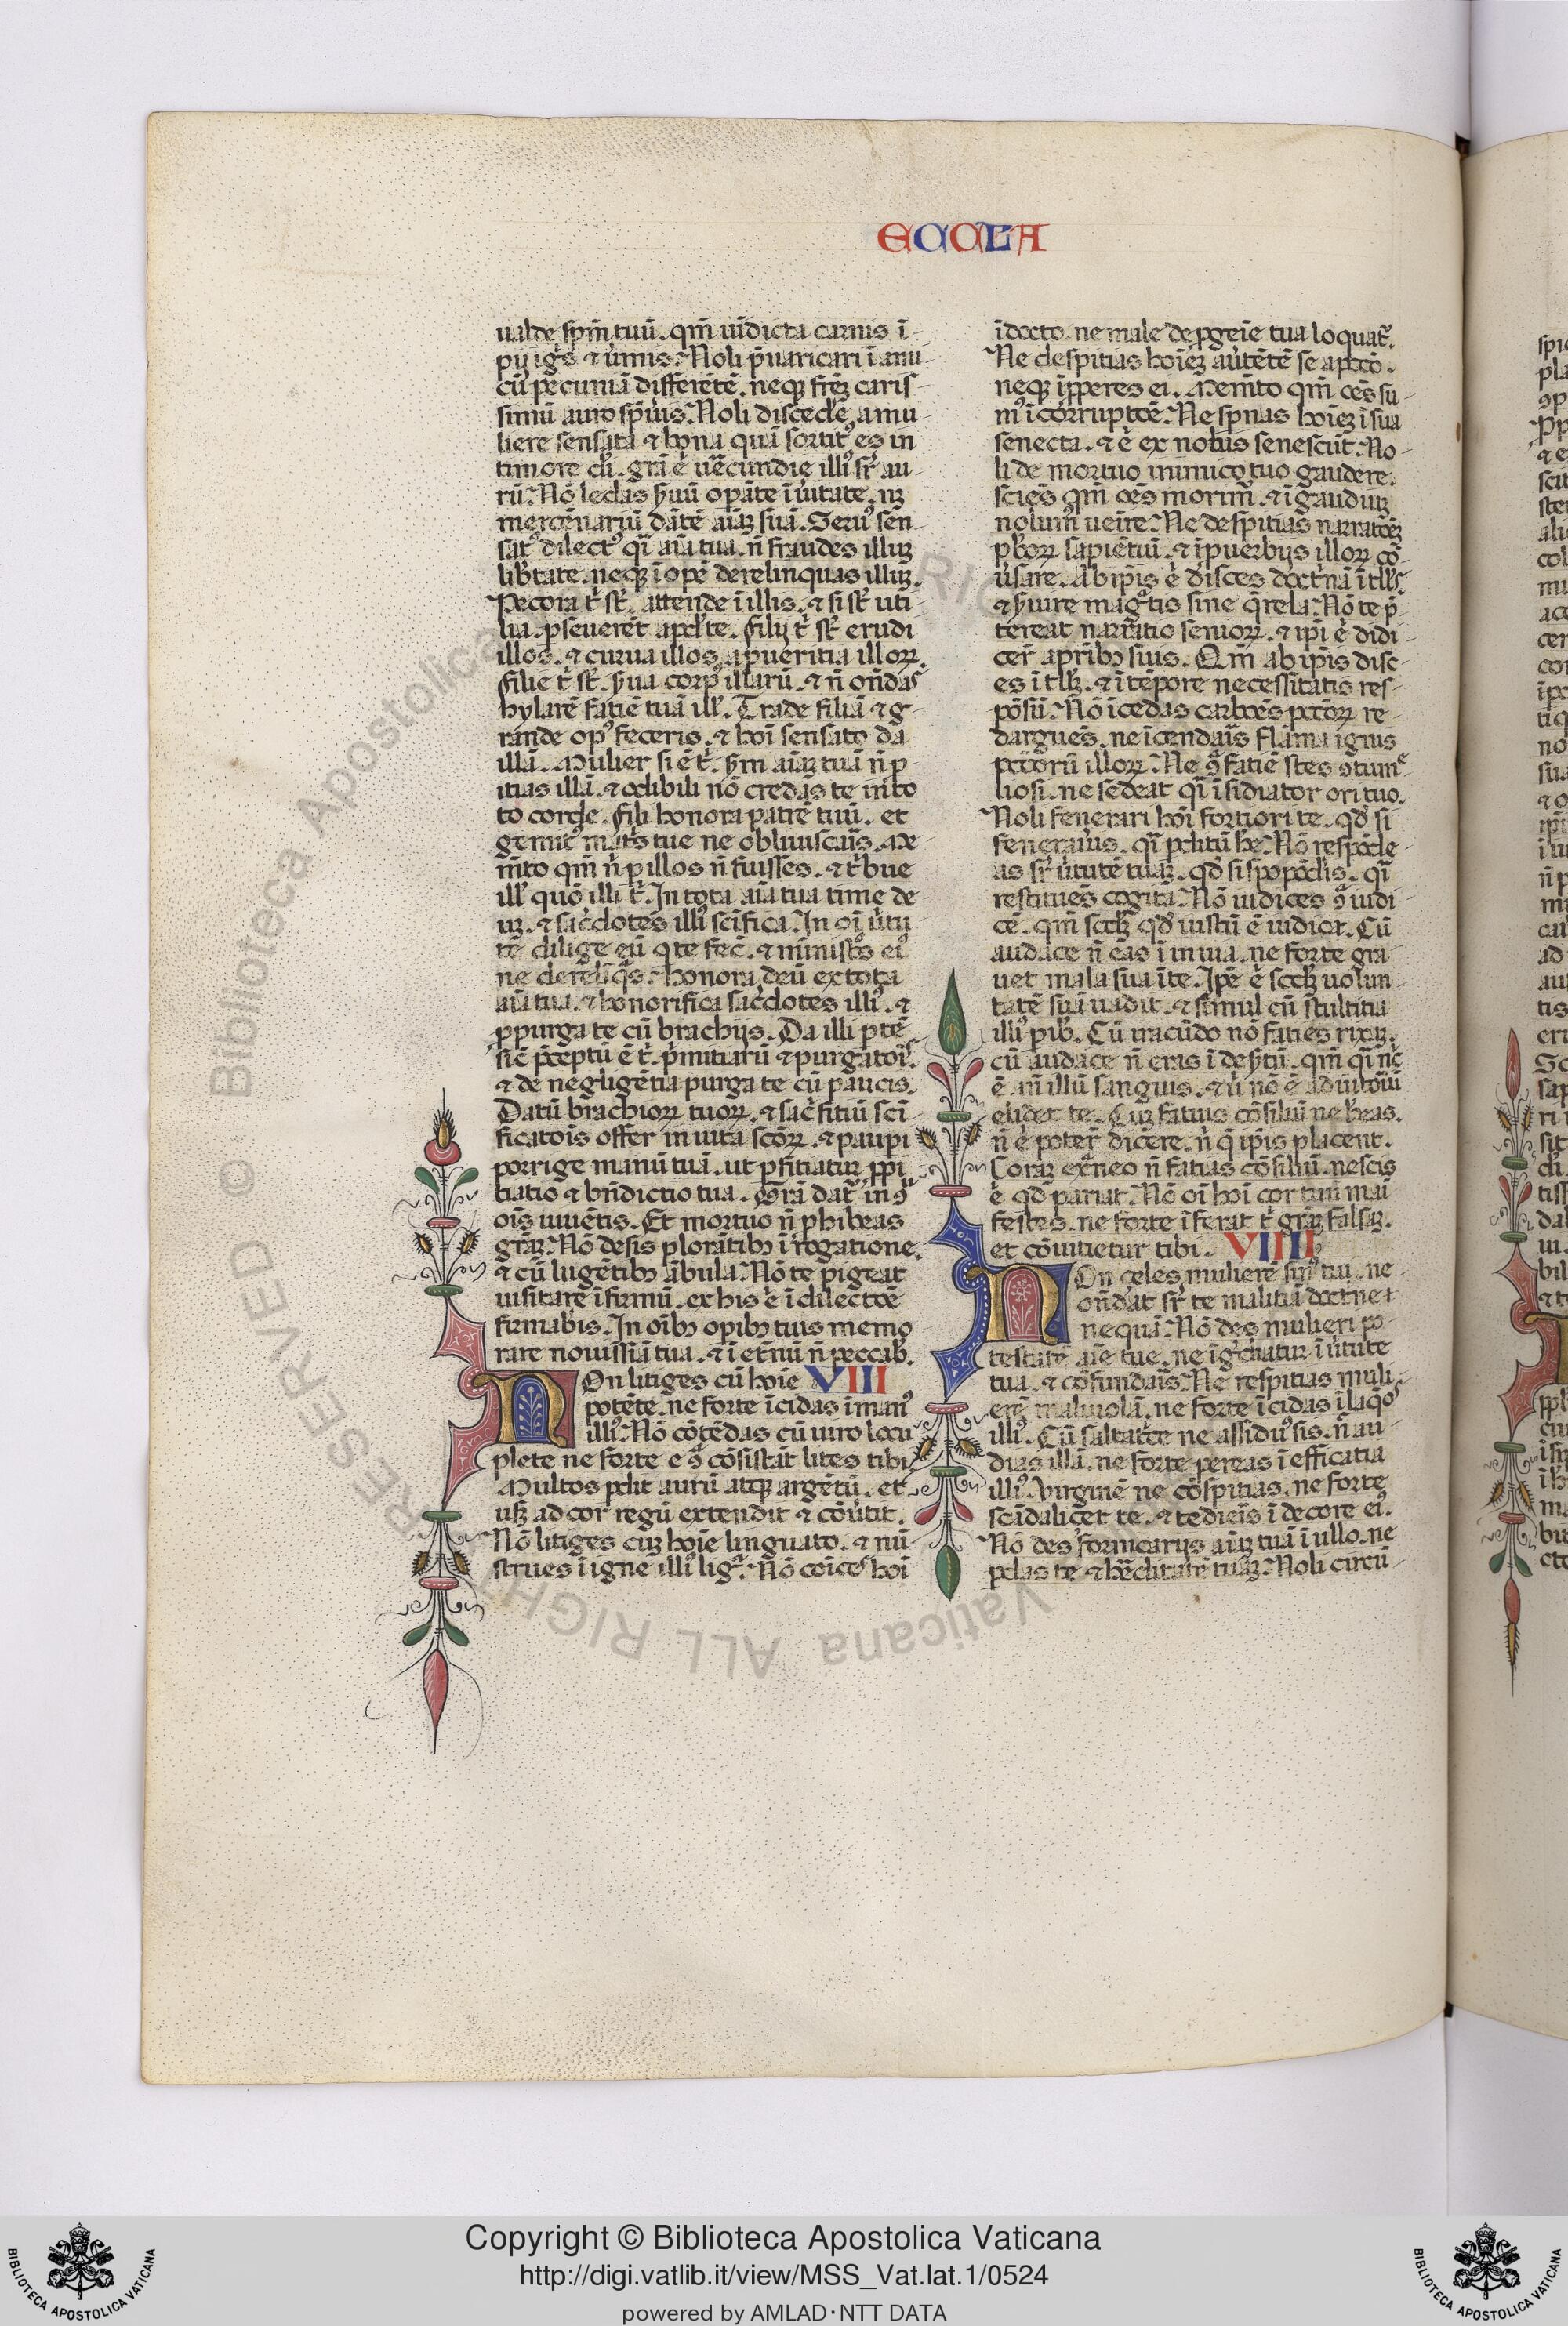 ECCLA
ualde sp̄m tuū. qm̄ uīdicta carnis ī-
pij igīs & ūmis. Noli p̄uaricari ī ami-
cū pecuniā differētē. neqꝫ frēꝫ caris-
simū auro sp̄ūis. Noli discedēe a mu-
liere sensata & bona quā sortitꝰ es in
timore dn̄i. grā .n. uēcundie illiꝰ sr̄ au-
rū. Nō ledas ẜuū opāte ī ūitate. nꝫ
mercēnariū dātē aīaꝫ suā. Seruꝰ sen-
satꝰ dilectꝰ qī aīa tua. n̄ fraudes illuꝫ
lib̄tate. neqꝫ īopē derelinquas illuꝫ.
Pecora t͛ st͛. attende ī illis. & si st͛ uti-
lia. pseuerēt apd̄ te. filij t͛ st͛. erudi
illos. & curua illos a pueritia illoꝝ.
filie t͛ st͛. ẜua corpꝰ illarū. & n̄ on̄das
hylarē fatiē tuā ill͛. Trade filiā & g-
rande opꝰ feceris. & hoī sensato da
illā. Mulier si ē t͛. ẜm aīaꝫ tuā n̄ p-
itias illā. & odibili nō credas te in to
to corde. fili honora patrē tuū. et
gemitꝰ mat͛s tue ne obliuiscaīs. Me
m̄to qm̄ n̄ p illos n̄ fuisses. & t͛bue
ill͛ quō illi t͛. In tota aīa tua time de
uꝫ. & sac͛dotes illiꝰ scīfica. In oī ūtu
te dilige eū q te fec̄. & ministōs eiꝰ
ne derelīqs. Honora deū ex tota
aīa tua. & honorifica sac͛dotes illiꝰ. &
ppurga te cū brachijs. Da illi ptē
sic̄ p̄ceptū ē t͛. p̄mitiarū & purgatoīs.
& de negligētia purga te cū paucis.
Datū brachioꝝ tuoꝝ. & sac͛fitiū scī-
ficatoīs offer in uita scōꝝ. & paupi
porrige manū tuā. ut pfitiatur ppi
tiatio & bn̄dictio tua. Grā dat͛ in ꝯu
oīs uiuētis. Et mortuo n̄ phibeas
grāꝫ. Nō desis plorātibꝫ ī rogatione.
& cū lugētibꝫ ābula. Nō te pigeat
uisitare īfirmū. ex his .n. ī dilectōē
firmabis. In oībꝫ opibꝫ tuis memo
rare nouissīa tua. & ī et͛nū n̄ peccab͛.
VIII
NOn litiges cū hoīe
potēte. ne forte īcidas ī manꝰ
illiꝰ. Nō cōtēdas cū uiro locu
plete ne forte e ꝯ cōsistāt lites tibi
Multos pdit aurū atqꝫ argētū. et
usqꝫ ad cor regū extendit & cōūtit.
Nō litiges cuꝫ hoīe linguato. & nū
strues ī igne illiꝰ ligͣ. Nō cōīceˢ hoī
īdocto. ne male de pgēie tua loquat͛.
Ne despitias hoīeꝫ aūtētē se a pctō.
neqꝫ īpperes ei. Memto qm̄ oēs su-
mꝰ ī corruptōē. Ne sp̄nas hoīeꝫ ī sua
senecta. & .n. ex nobis senescūt. No-
li de mortuo inimico tuo gaudere.
sciēs qm̄ oēs morim͛. & ī gaudiuꝫ
nolumꝰ ueīre. Ne despitias narratōēꝫ
pb͛oꝝ sapiētiū. & ī puerbijs illoꝝ cō-
ūsare. Ab ipīs .n. disces doct͛nā ītllꝰ
& ẜuire magtis sine q̄rela. Nō te p̄-
tereat narratio senioꝝ. & ipī .n. didi-
cer͛ a p̄ribꝫ suis. Qm̄ ab ipīs disc-
es ītllꝫ. & ī tēpore necessitatis res-
pōsū. Nō īcēdas carboēs pctōꝝ re-
darguēs. ne īcendaīs flāma ignis
pctōrū illoꝝ. Ne ꝯ fatiē stes ꝯtume-
liosi. ne sedeat qī īsidiator ori tuo.
Noli fenerari hoī fortiori te. qd̄ si
feneraūis. qī pditū he. Nō respōde-
as sr̄ ūtutē tuaꝫ. qd̄ si spopōdis. qī
restituēs cogita. Nō iudices ꝯ iudi-
cē. qm̄ scd̄ꝫ qd̄ iustū ē iudicat. Cū
audace n̄ eas ī in uia. ne forte gra
uet mala sua ī te. Ipē .n. scd̄ꝫ uolun-
tatē suā uadit. & simul cū stultitia
illiꝰ pib͛. Cū iracūdo nō faties rixaꝫ.
cū audace n̄ eras ī deẜtū. qm̄ qī nc̄
ē an̄ illū sanguis. & ū nō ē adiutoīū
elidet te. Cuꝫ fatuis cōsiliū ne h̄eas.
n̄ .n. poter͛ dicere. n̄ q ipīs placent.
Coraꝫ ex͛neo n̄ fatias cōsiliū. nescis
.n. qd̄ pariat. Nō oī hoī cor tuū maī
festes. ne forte īferat t͛ grāꝫ falsaꝫ.
et cōuitietur tibi. VIIII
NOn celes mulierē sinꝰ tui. ne
on̄dat sr̄ te malitiā doct͛ne
nequā. Nō des mulieri po-
testatē aīe tue. ne īg͛diatur ī ūtute
tua. & cōfundaīs. Ne respitias muli-
erē maliuolā. ne forte īcidas ī laq̄oˢ
illiꝰ. Cū saltatce ne assiduꝰ sis. n̄ au-
dias illā. ne forte pereas ī efficatia
illiꝰ. Virginē ne cōspitias. ne forte
scādaliceˢ te. & te dieīs ī decore eiꝰ.
Nō des fornicarijs aīaꝫ tuā ī ullo. ne
pdas te & hēditatē tuaꝫ. Noli circū-
Copyright © Biblioteca Apostolica Vaticana
http://digi.vatlib.it/view/MSS_Vat.lat.1/0524
powered by AMLAD·NTT DATA